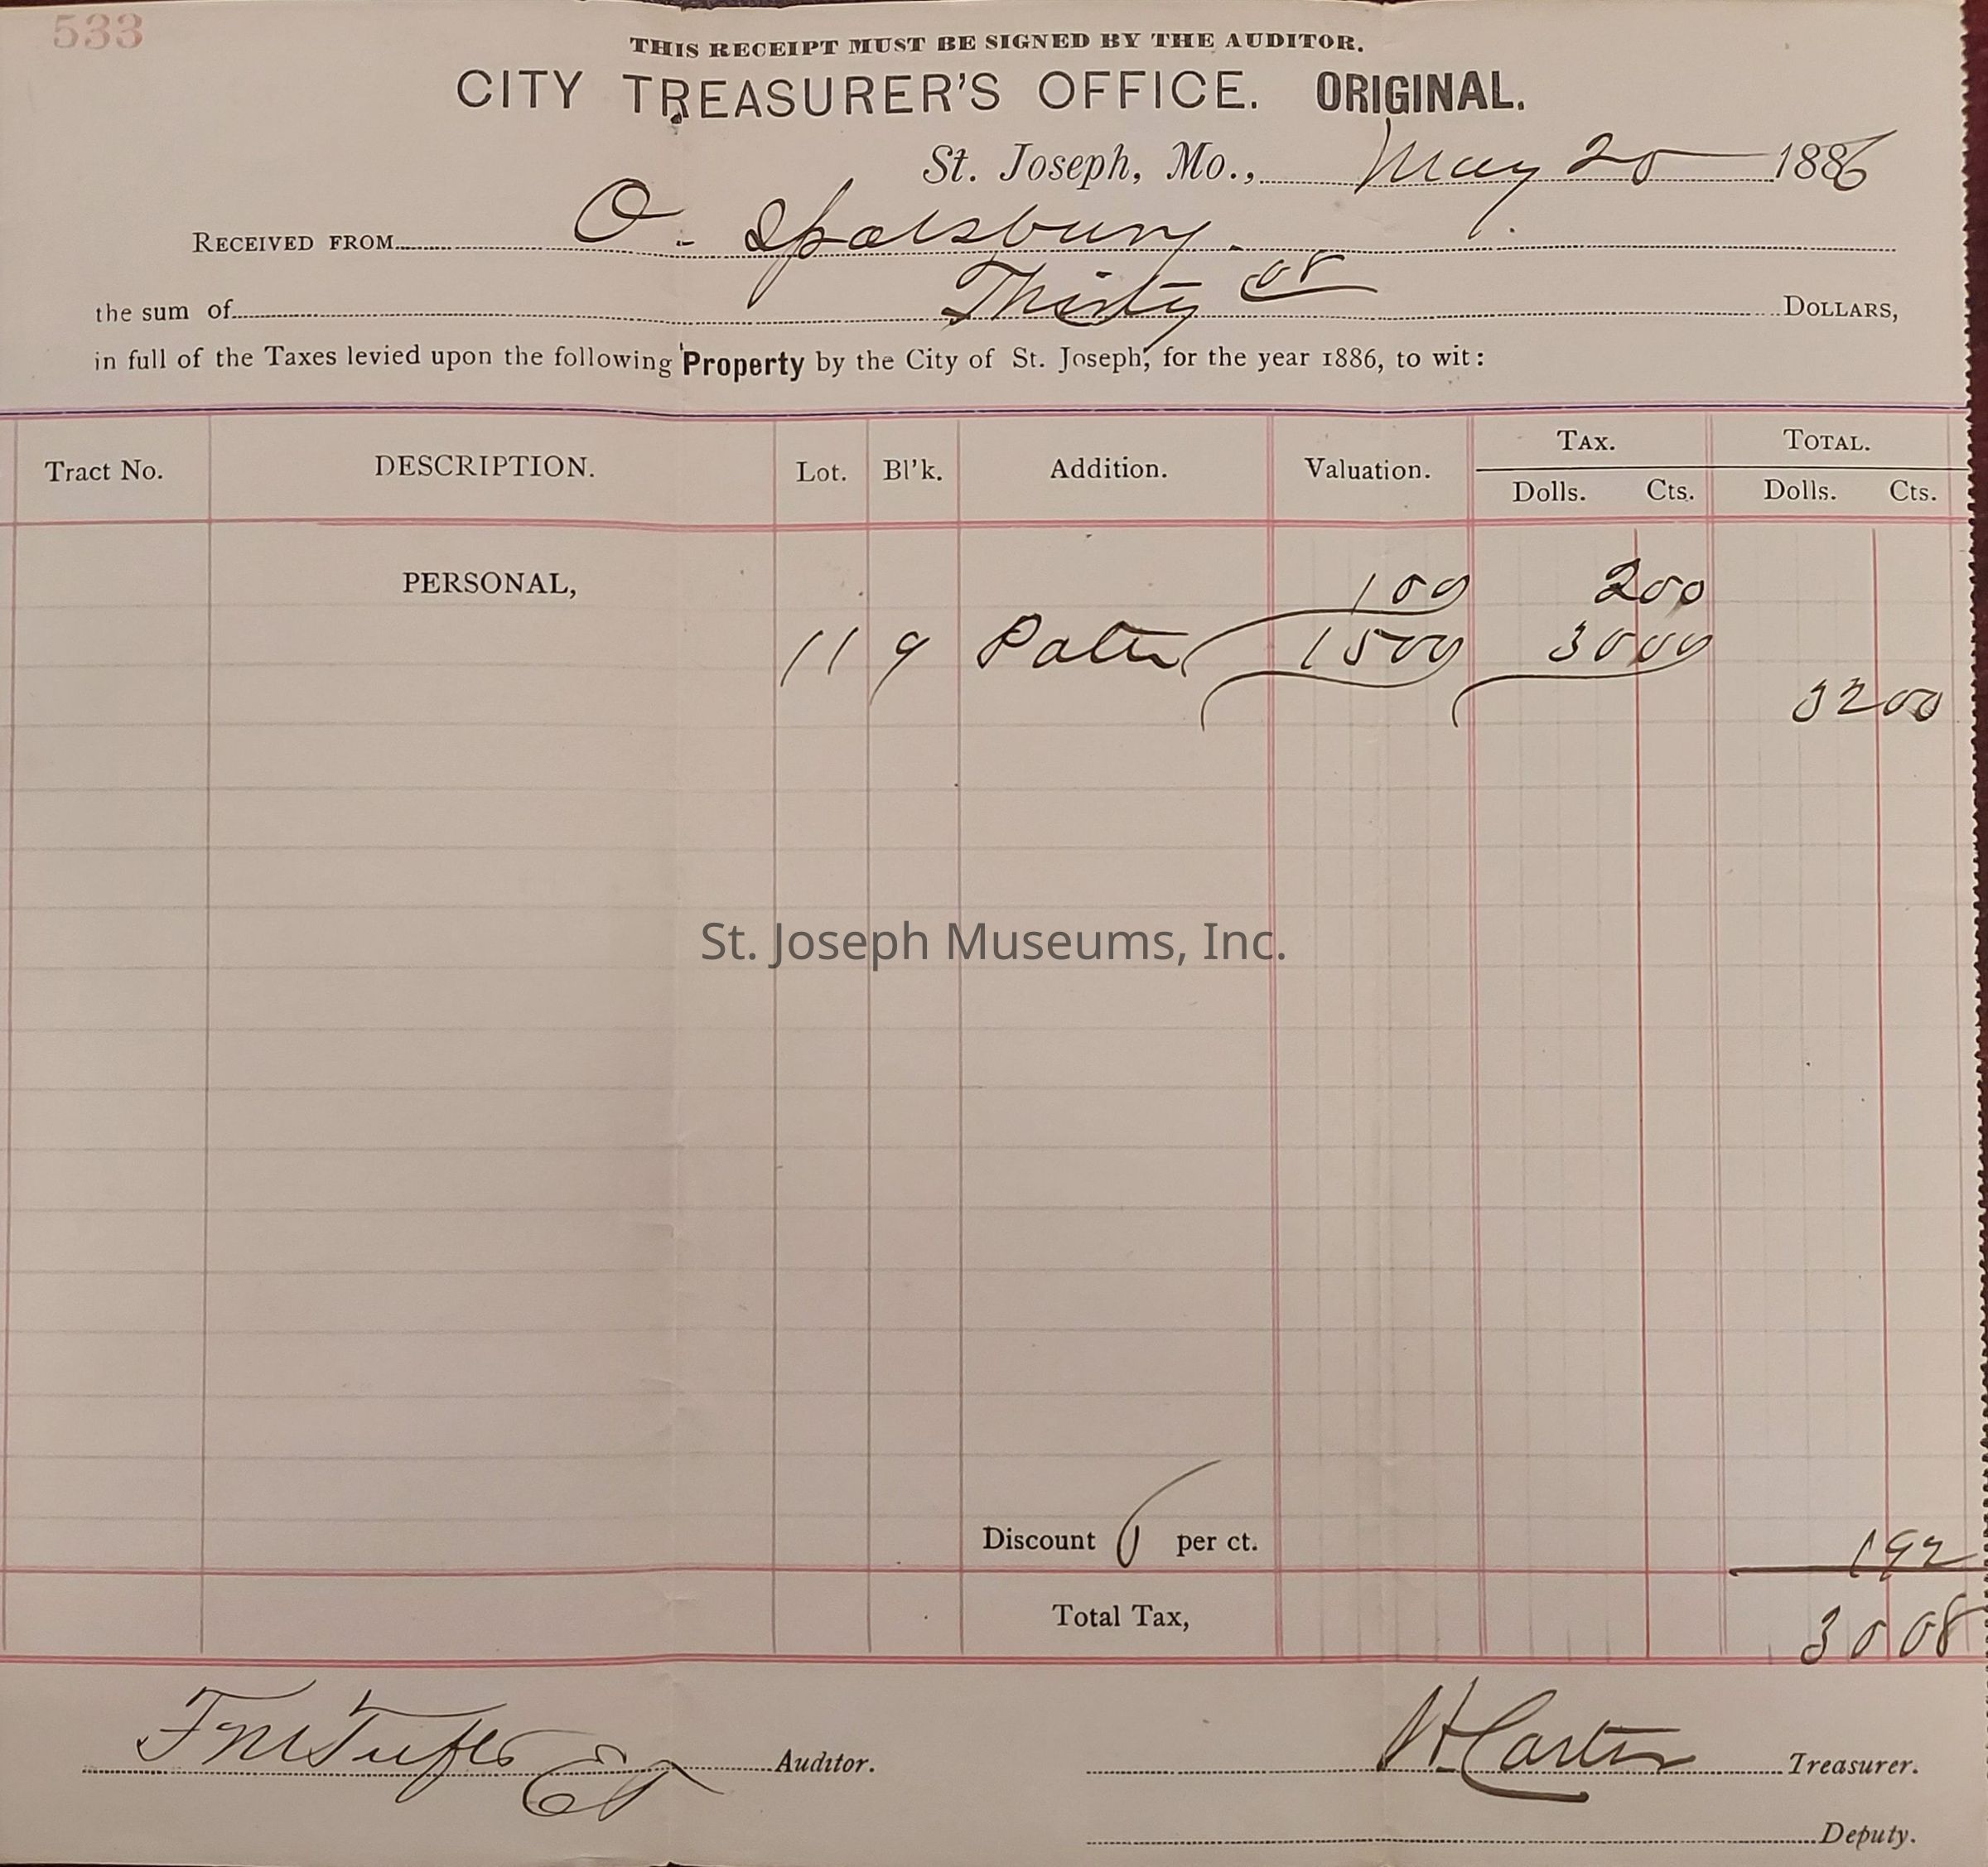 533
THIS RECEIPT MUST BE SIGNED BY THE AUDITOR.
CITY TREASURER'S OFFICE. ORIGINAL.
St. Joseph, Mo., May 20 1886
RECEIVED FROM O. Spalsbury.
the sum of Thirty 08 DOLLARS,
in full of the Taxes levied upon the following Property by the City of St. Joseph, for the year 1886, to wit:
Tract No. DESCRIPTION. Lot. Bl'k. Addition. Valuation. TAX. TOTAL.
Dolls. Cts. Dolls. Cts.
PERSONAL, 100 2 00
11 9 Patee 1500 30 00
32 00
St. Joseph Museums, Inc.
Discount 6 per ct. 1 92
Total Tax, 30 08
Auditor. H Carter Treasurer.
Deputy.